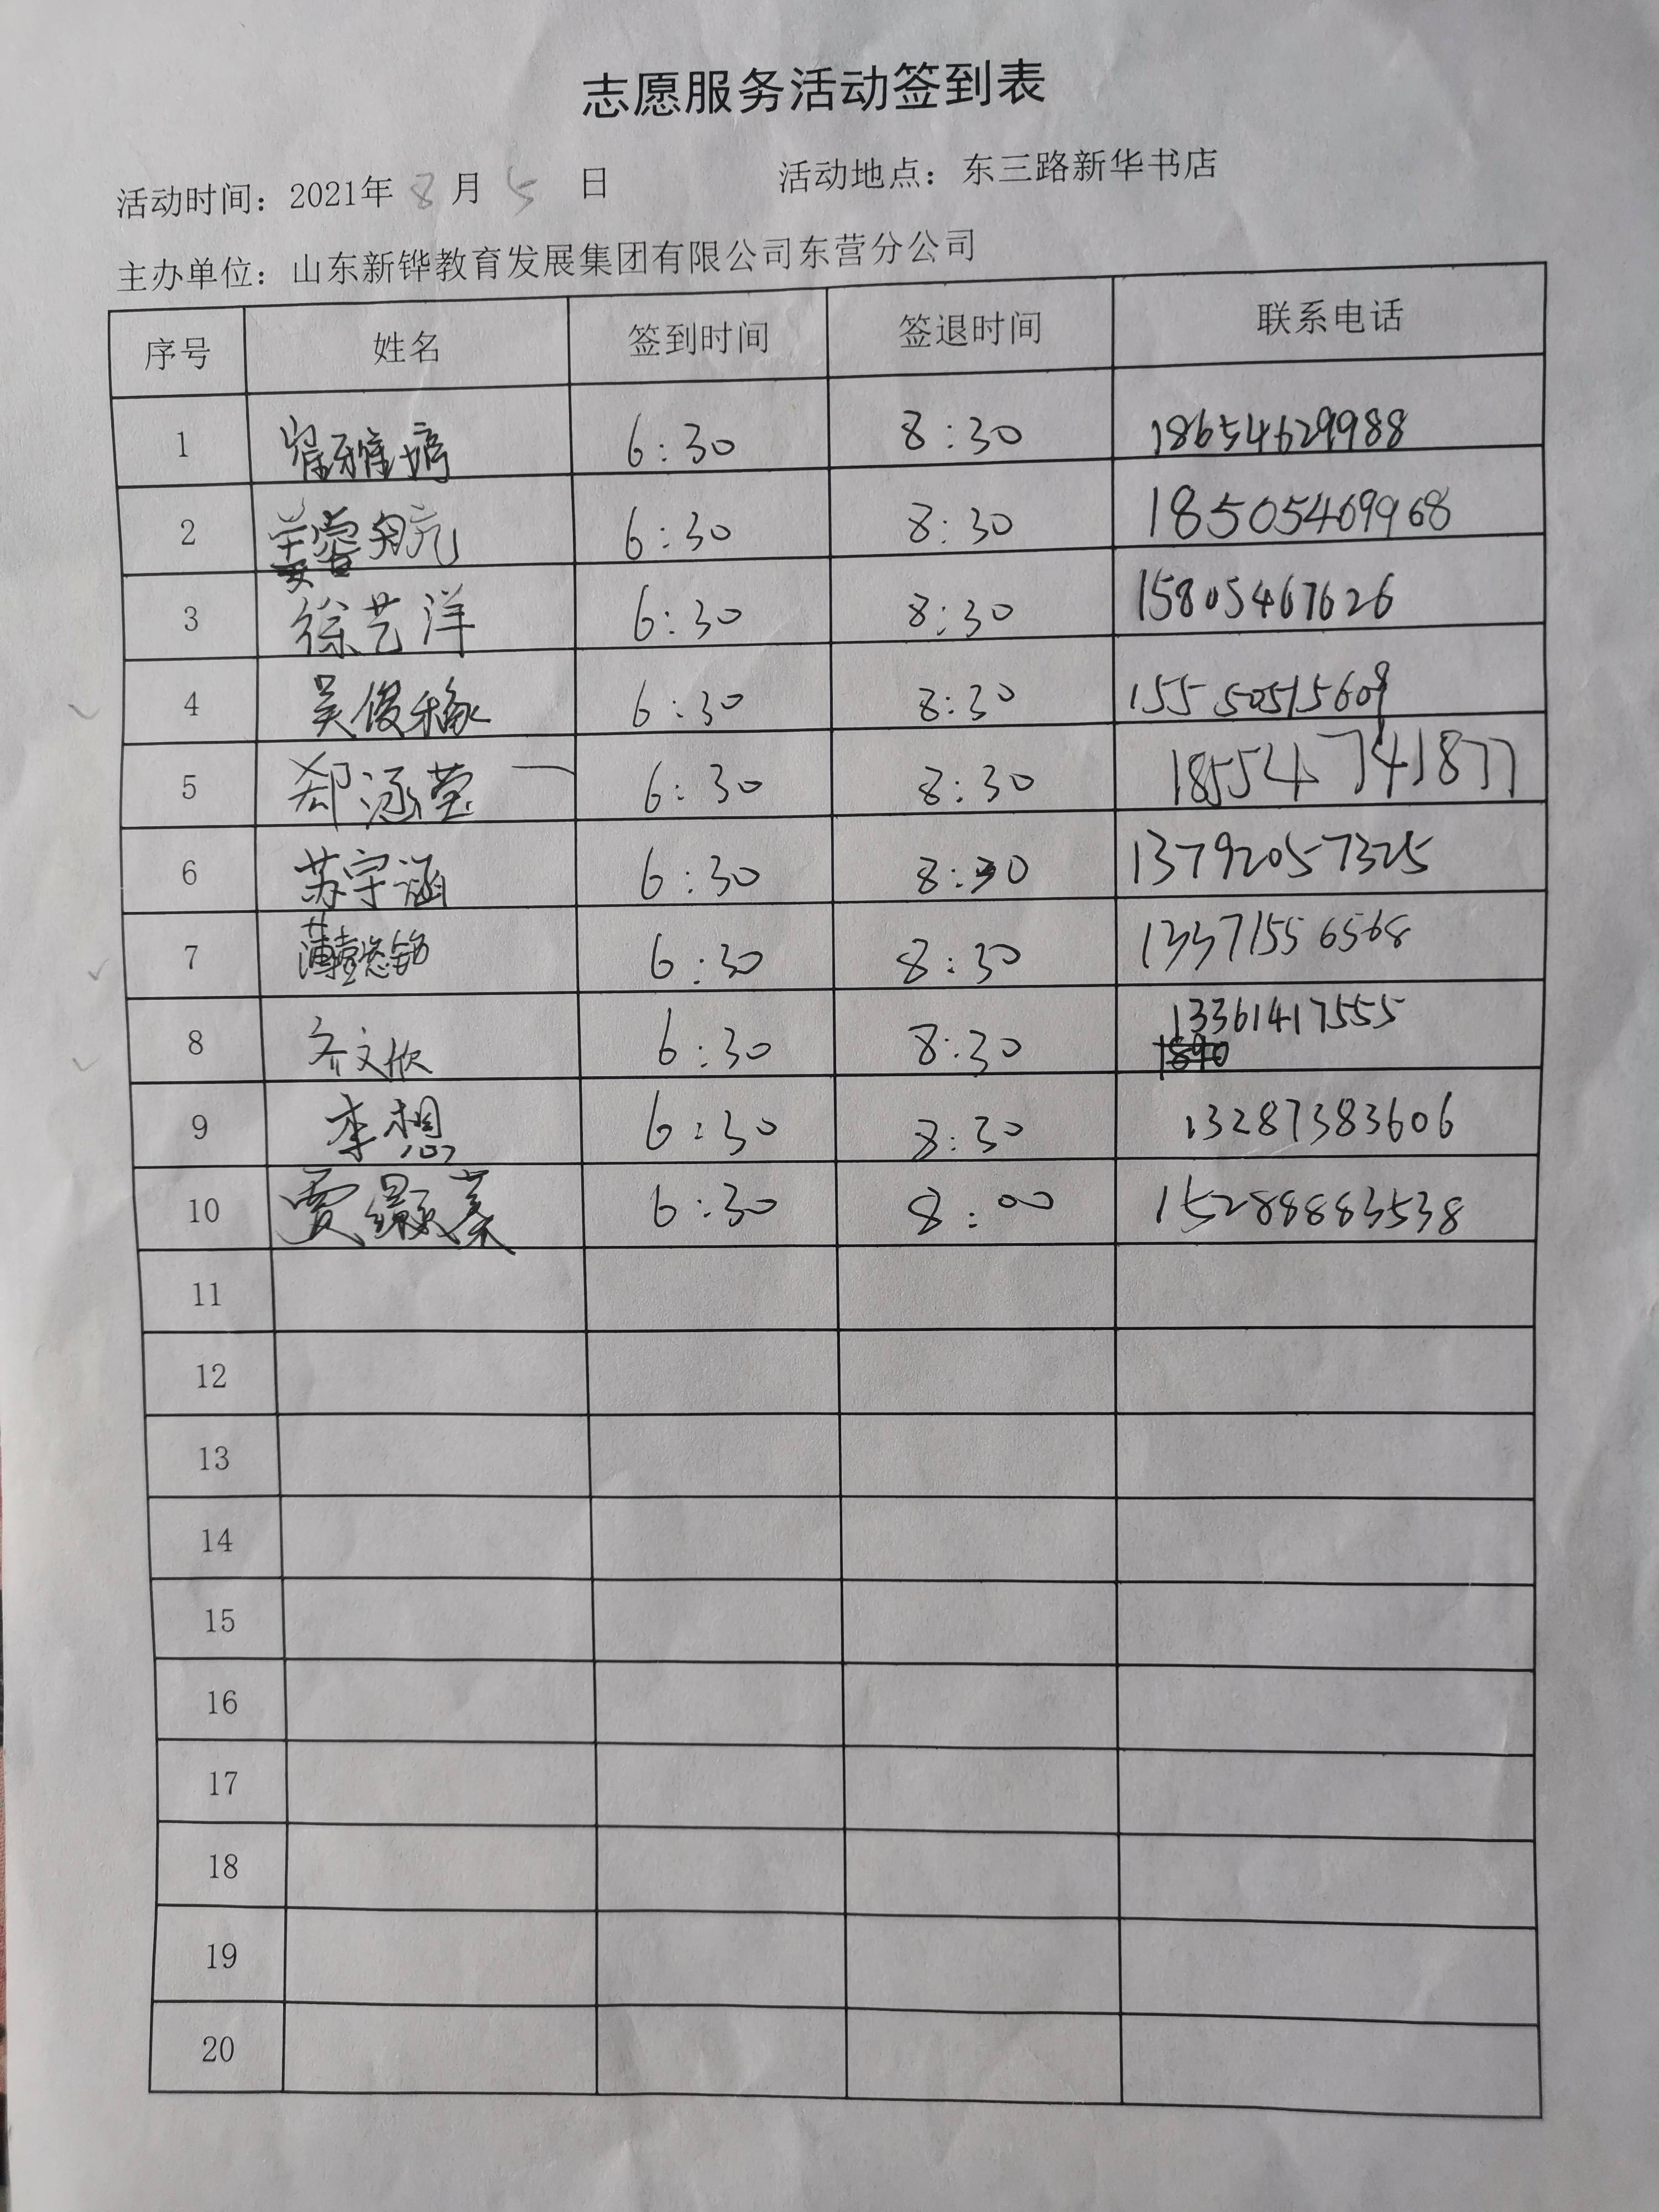 志愿服务活动签到表
活动时间：2021年 8 月 5 日 活动地点：东三路新华书店
主办单位：山东新铧教育发展集团有限公司东营分公司
序号 姓名 签到时间 签退时间 联系电话
1 崔雅婷 6:30 8:30 18654629988
2 姜睿航 6:30 8:30 18505469968
3 徐艺洋 6:30 8:30 15805467626
4 吴俊 6:30 8:30 15550515609
5 郄涵莹 6:30 8:30 18554741877
6 苏宇涵 6:30 8:30 13792057325
7 6:30 8:30 13371556568
8 齐文欣 6:30 8:30 13361417555
9 李想 6:30 8:30 13287383606
10 贾 6:30 8:00 15288883538
11
12
13
14
15
16
17
18
19
20